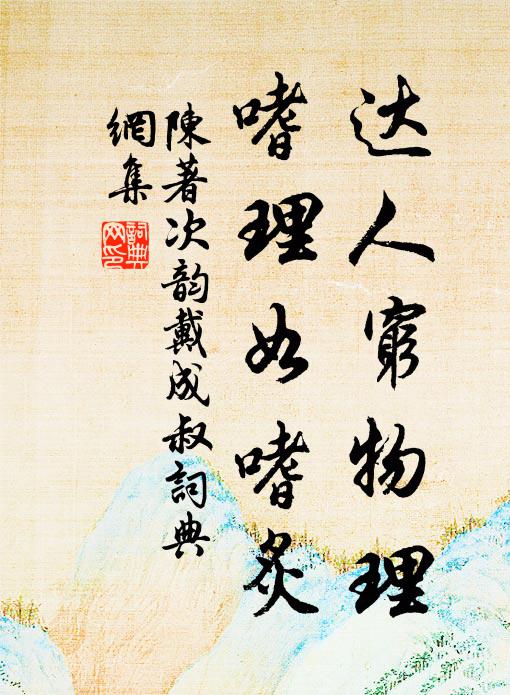 达人窮物理
嗜理如嗜炙
陳著次韵戴成叔詞典
網集
詞典
网印